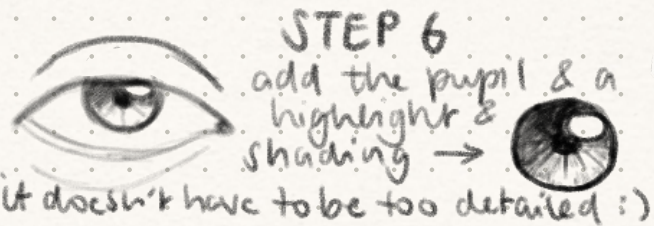 STEP 6
add the pupil & a
highlight &
shading →
it doesn't have to be too detailed :)